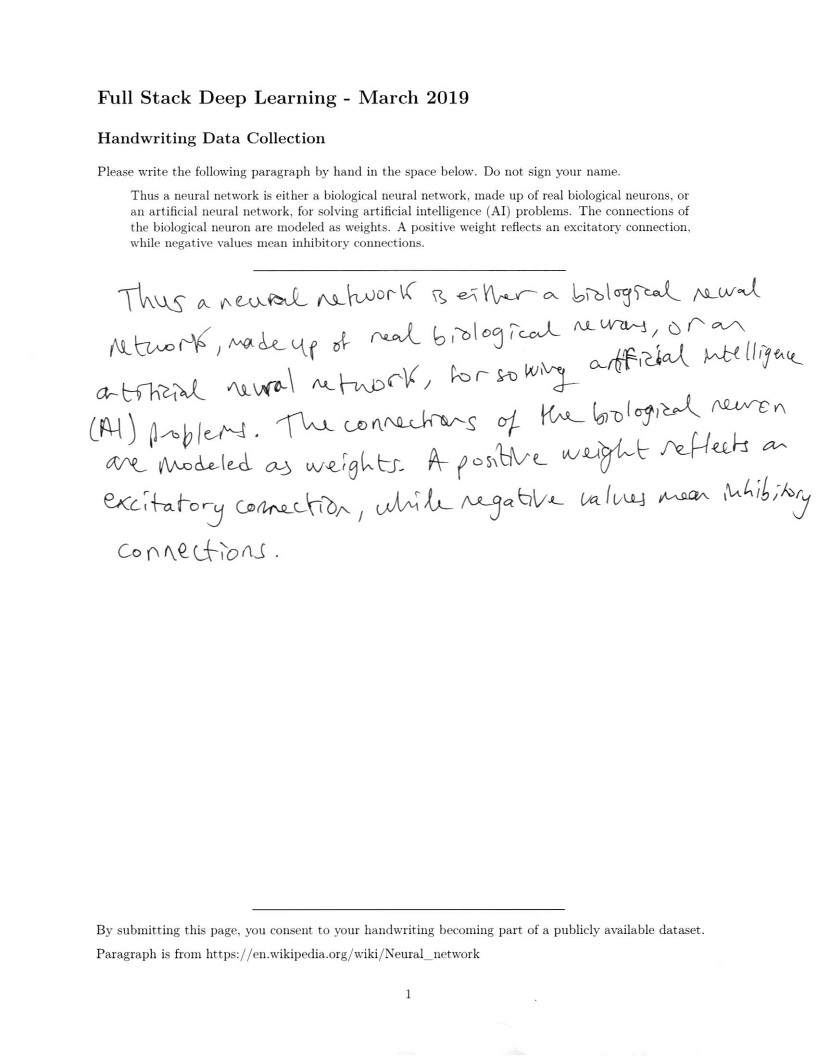 Full Stack Deep Learning - March 2019
Handwriting Data Collection
Please write the following paragraph by hand in the space below. Do not sign your name.
Thus a neural network is either a biological neural network, made up of real biological neurons, or
an artificial neural network, for solving artificial intelligence (AI) problems. The connections of
the biological neuron are modeled as weights. A positive weight reflects an excitatory connection,
while negative values mean inhibitory connections.
Thus a neural network is either a biological neural
network, made up of real biological neurons, or an
artificial neural network, for solving artificial intelligence
(AI) problems. The connections of the biological neuron
are modeled as weights. A positive weight reflects an
excitatory connection, while negative values mean inhibitory
connections.
By submitting this page, you consent to your handwriting becoming part of a publicly available dataset.
Paragraph is from https://en.wikipedia.org/wiki/Neural_network
1